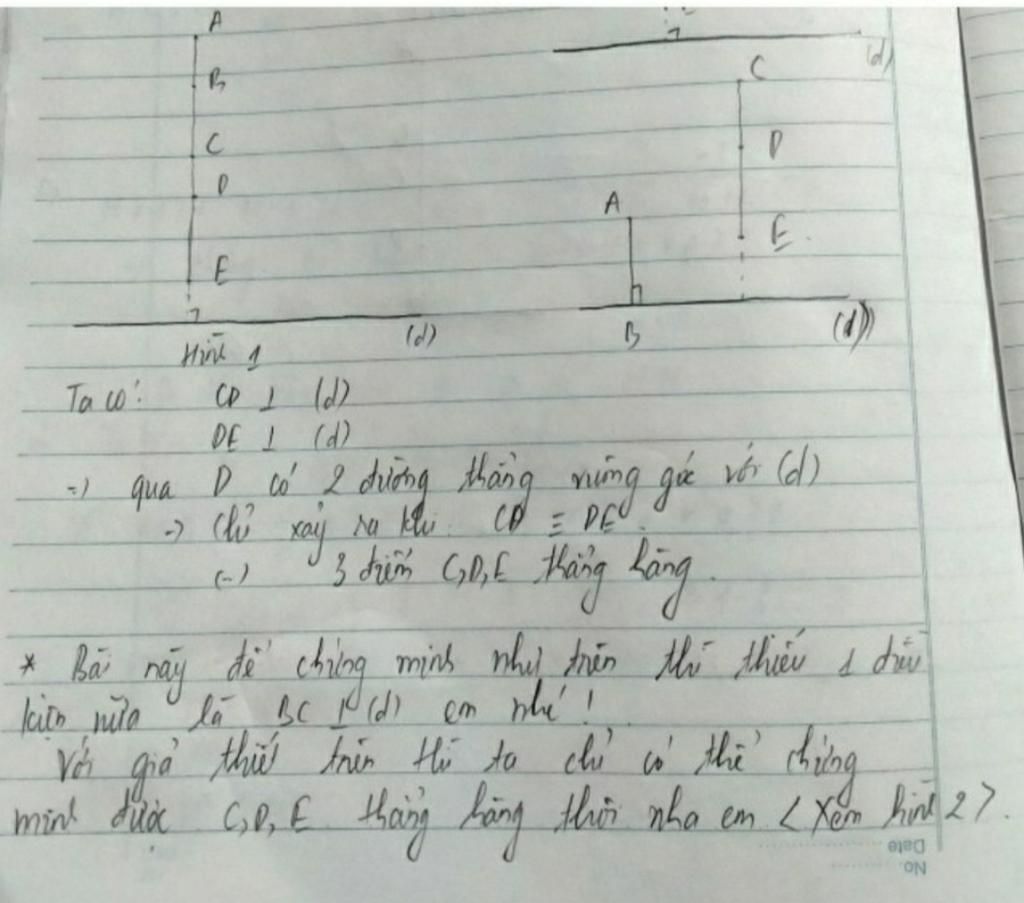 A
B
C
D
E
(d)
Hình 1
(d)
C
D
E
A
B
(d)
Ta có: CD ⊥ (d)
DE ⊥ (d)
=) qua D có 2 đường thẳng vuông góc với (d)
-) Chỉ xảy ra khi CD ≡ DE.
(-) 3 điểm C,D,E thẳng hàng.
* Bài này để chứng minh như trên thì thiếu 1 điều
kiện nữa là BC ⊥ (d) em nhé!
Với giả thiết trên thì ta chỉ có thể chứng
minh được C,D,E thẳng hàng thôi nha em <Xem hình 2>.
Date
No.